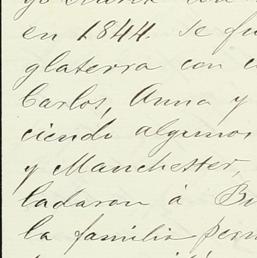 en 1844. Se fu
glaterra con
Carlos, Anna y
ciendo algunos
y Manchester,
ladaron á Bu
la familia perm